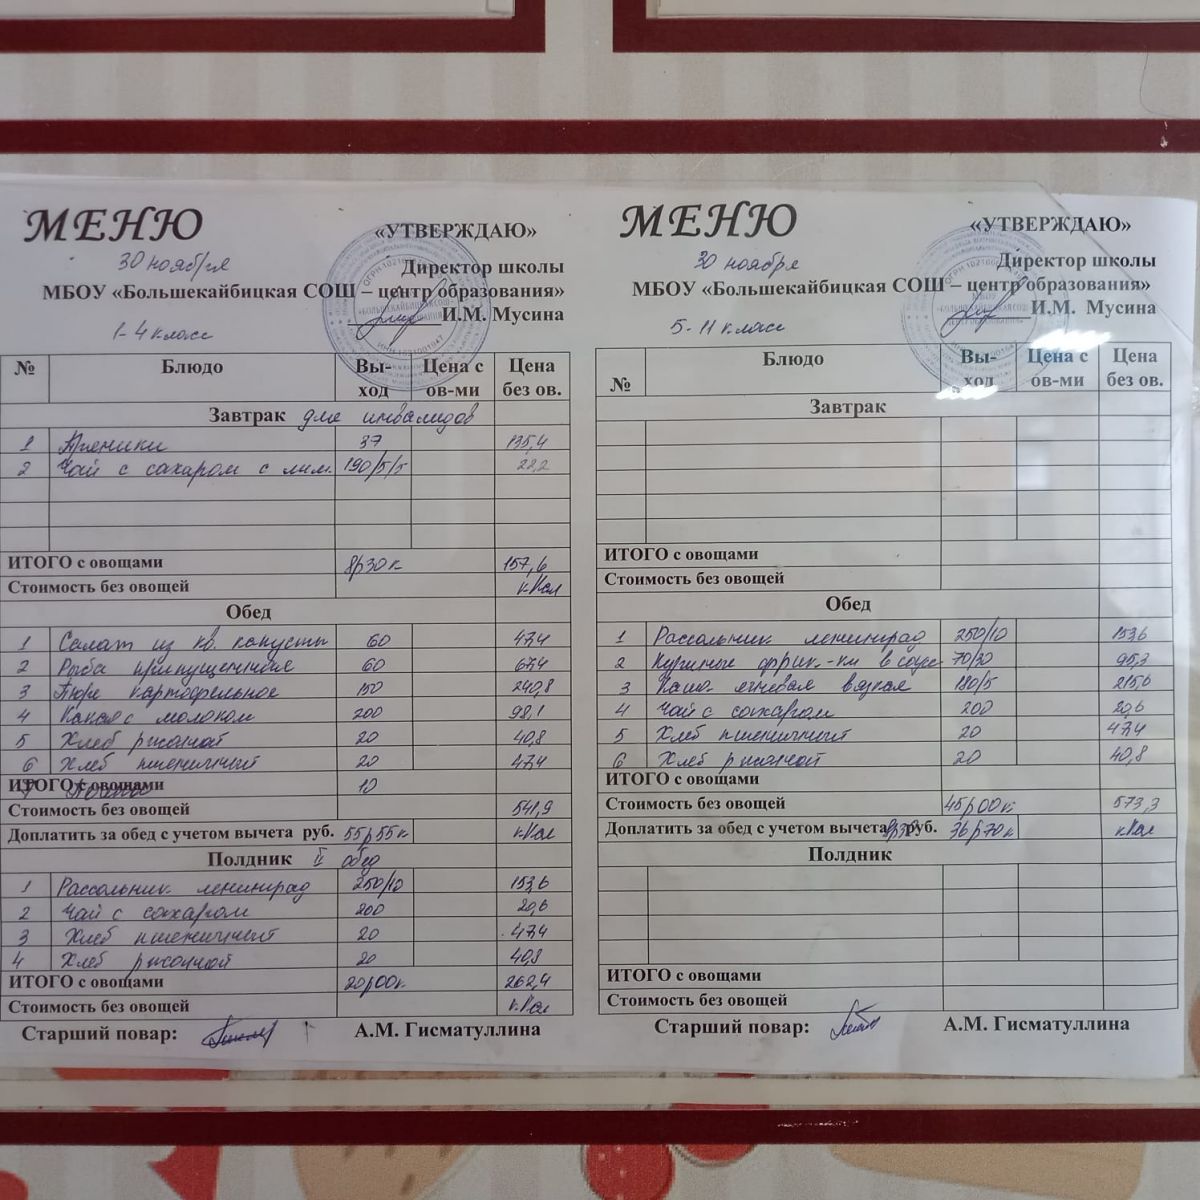 МЕНЮ
«УТВЕРЖДАЮ»
30 ноября
Директор школы
МБОУ «Большекайбицкая СОШ – центр образования»
И.М. Мусина
1-4 класс
№ Блюдо Вы-ход Цена с ов-ми Цена без ов.
Завтрак для инвалидов
1 Пряники 37 135,4
2 Чай с сахаром с лим. 190/5/5 22,2
ИТОГО с овощами 8р30к 157,6
Стоимость без овощей кКал
Обед
1 Салат из кв. капусты 60 47,4
2 Рыба припущенная 60 67,4
3 Пюре картофельное 150 240,8
4 Какао с молоком 200 98,1
5 Хлеб ржаной 20 40,8
6 Хлеб пшеничный 20 47,4
ИТОГО с овощами 10
Стоимость без овощей 541,9
Доплатить за обед с учетом вычета руб. 55р55к кКал
Полдник II обед
1 Рассольник ленинград 250/10 153,6
2 Чай с сахаром 200 20,6
3 Хлеб пшеничный 20 47,4
4 Хлеб ржаной 20 40,8
ИТОГО с овощами 20р00к 262,4
Стоимость без овощей кКал
Старший повар: А.М. Гисматуллина
МЕНЮ
«УТВЕРЖДАЮ»
30 ноября
Директор школы
МБОУ «Большекайбицкая СОШ – центр образования»
И.М. Мусина
5-11 класс
№ Блюдо Вы-ход Цена с ов-ми Цена без ов.
Завтрак
ИТОГО с овощами
Стоимость без овощей
Обед
1 Рассольник ленинград 250/10 153,6
2 Куриные фрик.-ки в соусе 70/30 95,3
3 Каша ячневая вязкая 180/5 215,6
4 Чай с сахаром 200 20,6
5 Хлеб пшеничный 20 47,4
6 Хлеб ржаной 20 40,8
ИТОГО с овощами
Стоимость без овощей 45р00к 573,3
Доплатить за обед с учетом вычета руб. 36р70к кКал
Полдник
ИТОГО с овощами
Стоимость без овощей
Старший повар: А.М. Гисматуллина